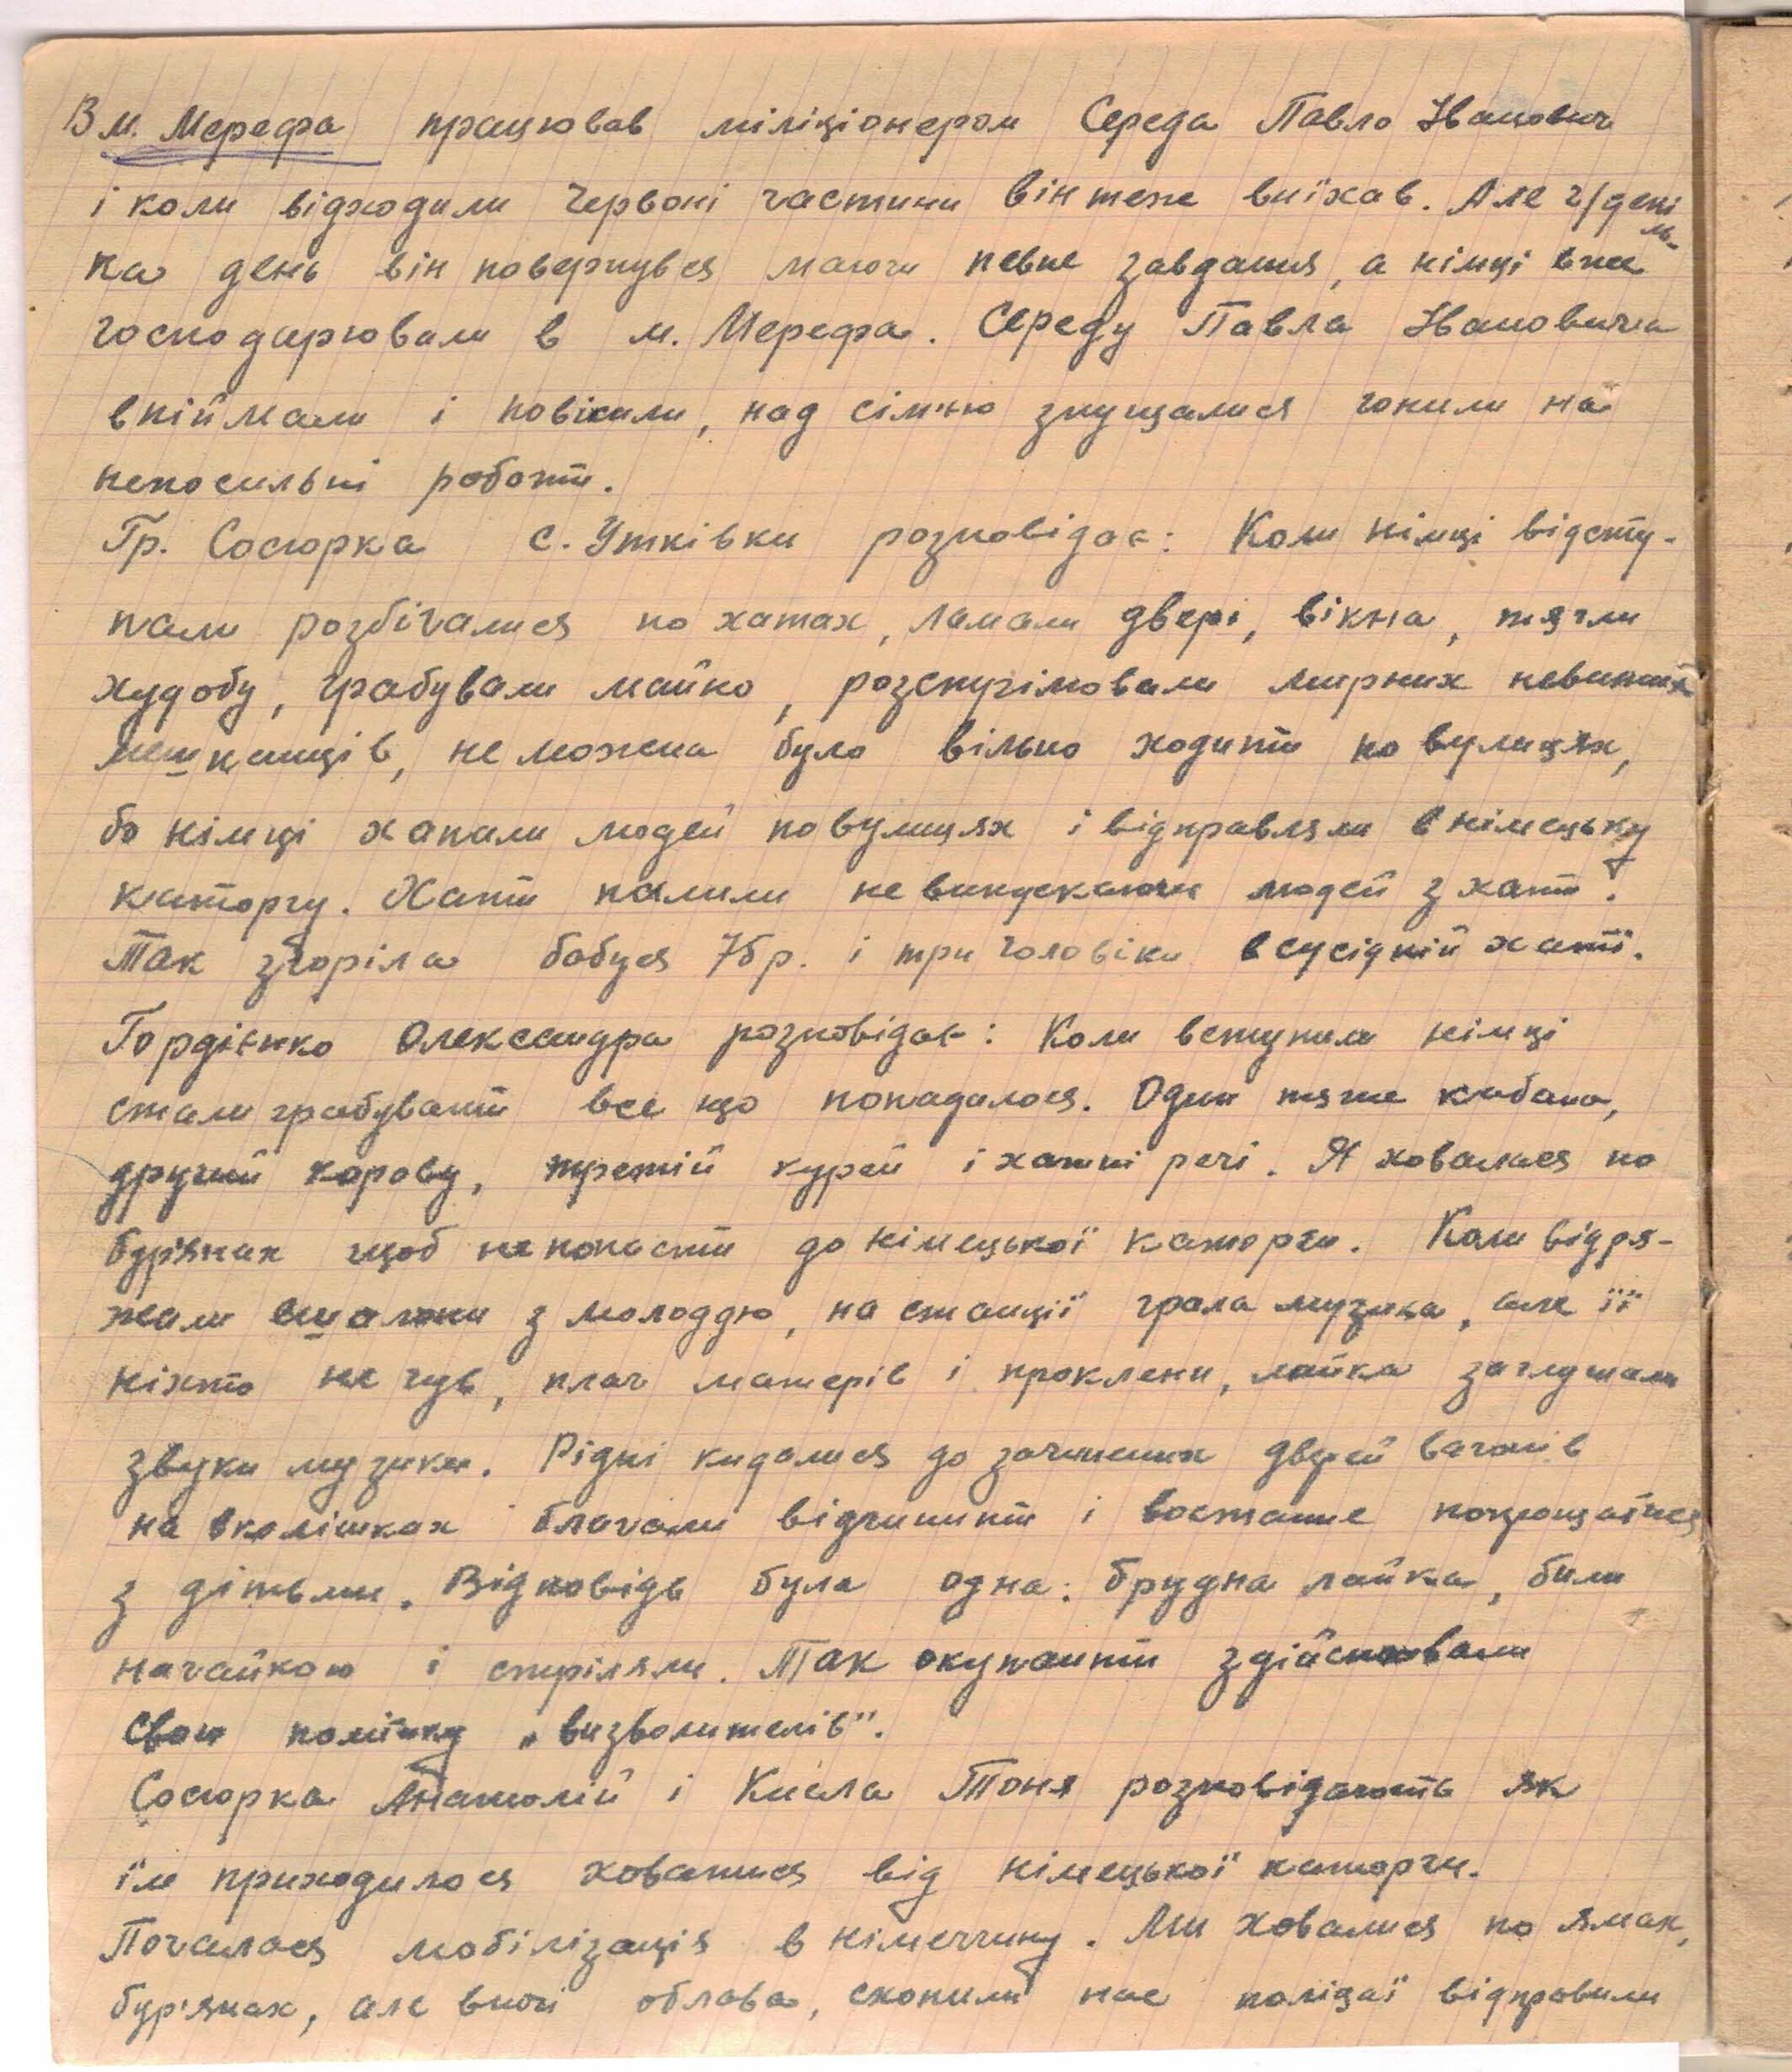 В м. Мерефа працював міліціонером Середа Павло Іванович
і коли відходили Червоні частини він теж виїхав. Але ч/декі
ль-
ка день він повернувся маючи певне завдання, а німці вже
господарювали в м. Мерефа. Середу Павла Івановича
впіймали і повісили, над сім'єю знущалися гонили на
непосильні роботи.
Гр. Сосюрка с. Утківки розповідає: Коли німці відсту-
пали розбігалися по хатах, ламали двері, вікна, тягли
худобу, грабували майно, розстрілювали мирних невинних
мешканців, не можна було вільно ходити по вулицях,
бо німці хапали людей по вулицях і відправляли в німецьку
каторгу. Хати палили не випускаючи людей з хати.
Так згоріла бабуся 75р. і три чоловіки в сусідній хаті.
Гордієнко Олександра розповідає: Коли вступили німці
стали грабувати все що попадалося. Один тягне кабана,
другий корову, третій курей і хатні речі. Я ховалася по
бур'янах щоб не попасти до німецької каторги. Коли відря-
жали ешалони з молоддю, на станції грала музика, але її
ніхто не чув, плач матерів і проклени, лайка заглушали
звуки музики. Рідні кидалися до зачинених дверей вагонів
на вколішках благали відчинити і востаннє попрощатися
з дітьми. Відповідь була одна: брудна лайка, били
нагайкою і стріляли. Так окупанти здійснювали
свою політику „визволителів".
Сосюрка Анатолій і Кисла Тоня розповідають як
їм приходилося ховатися від німецької каторги.
Почалася мобілізація в німеччину. Ми ховалися по ямах,
бур'янах, але вночі облава, схопили нас поліцаї відправили